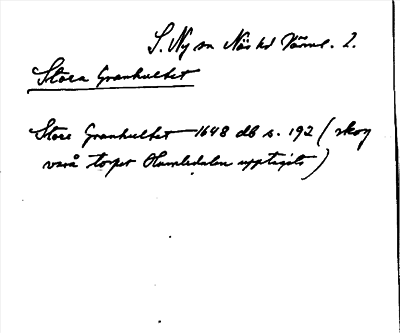 S. Ny sn Näs hd Värml. 2.
Stora Granhultet
Store Granhultet 1648 db s. 192 (skog
varå torpet Humledalen upptagits)